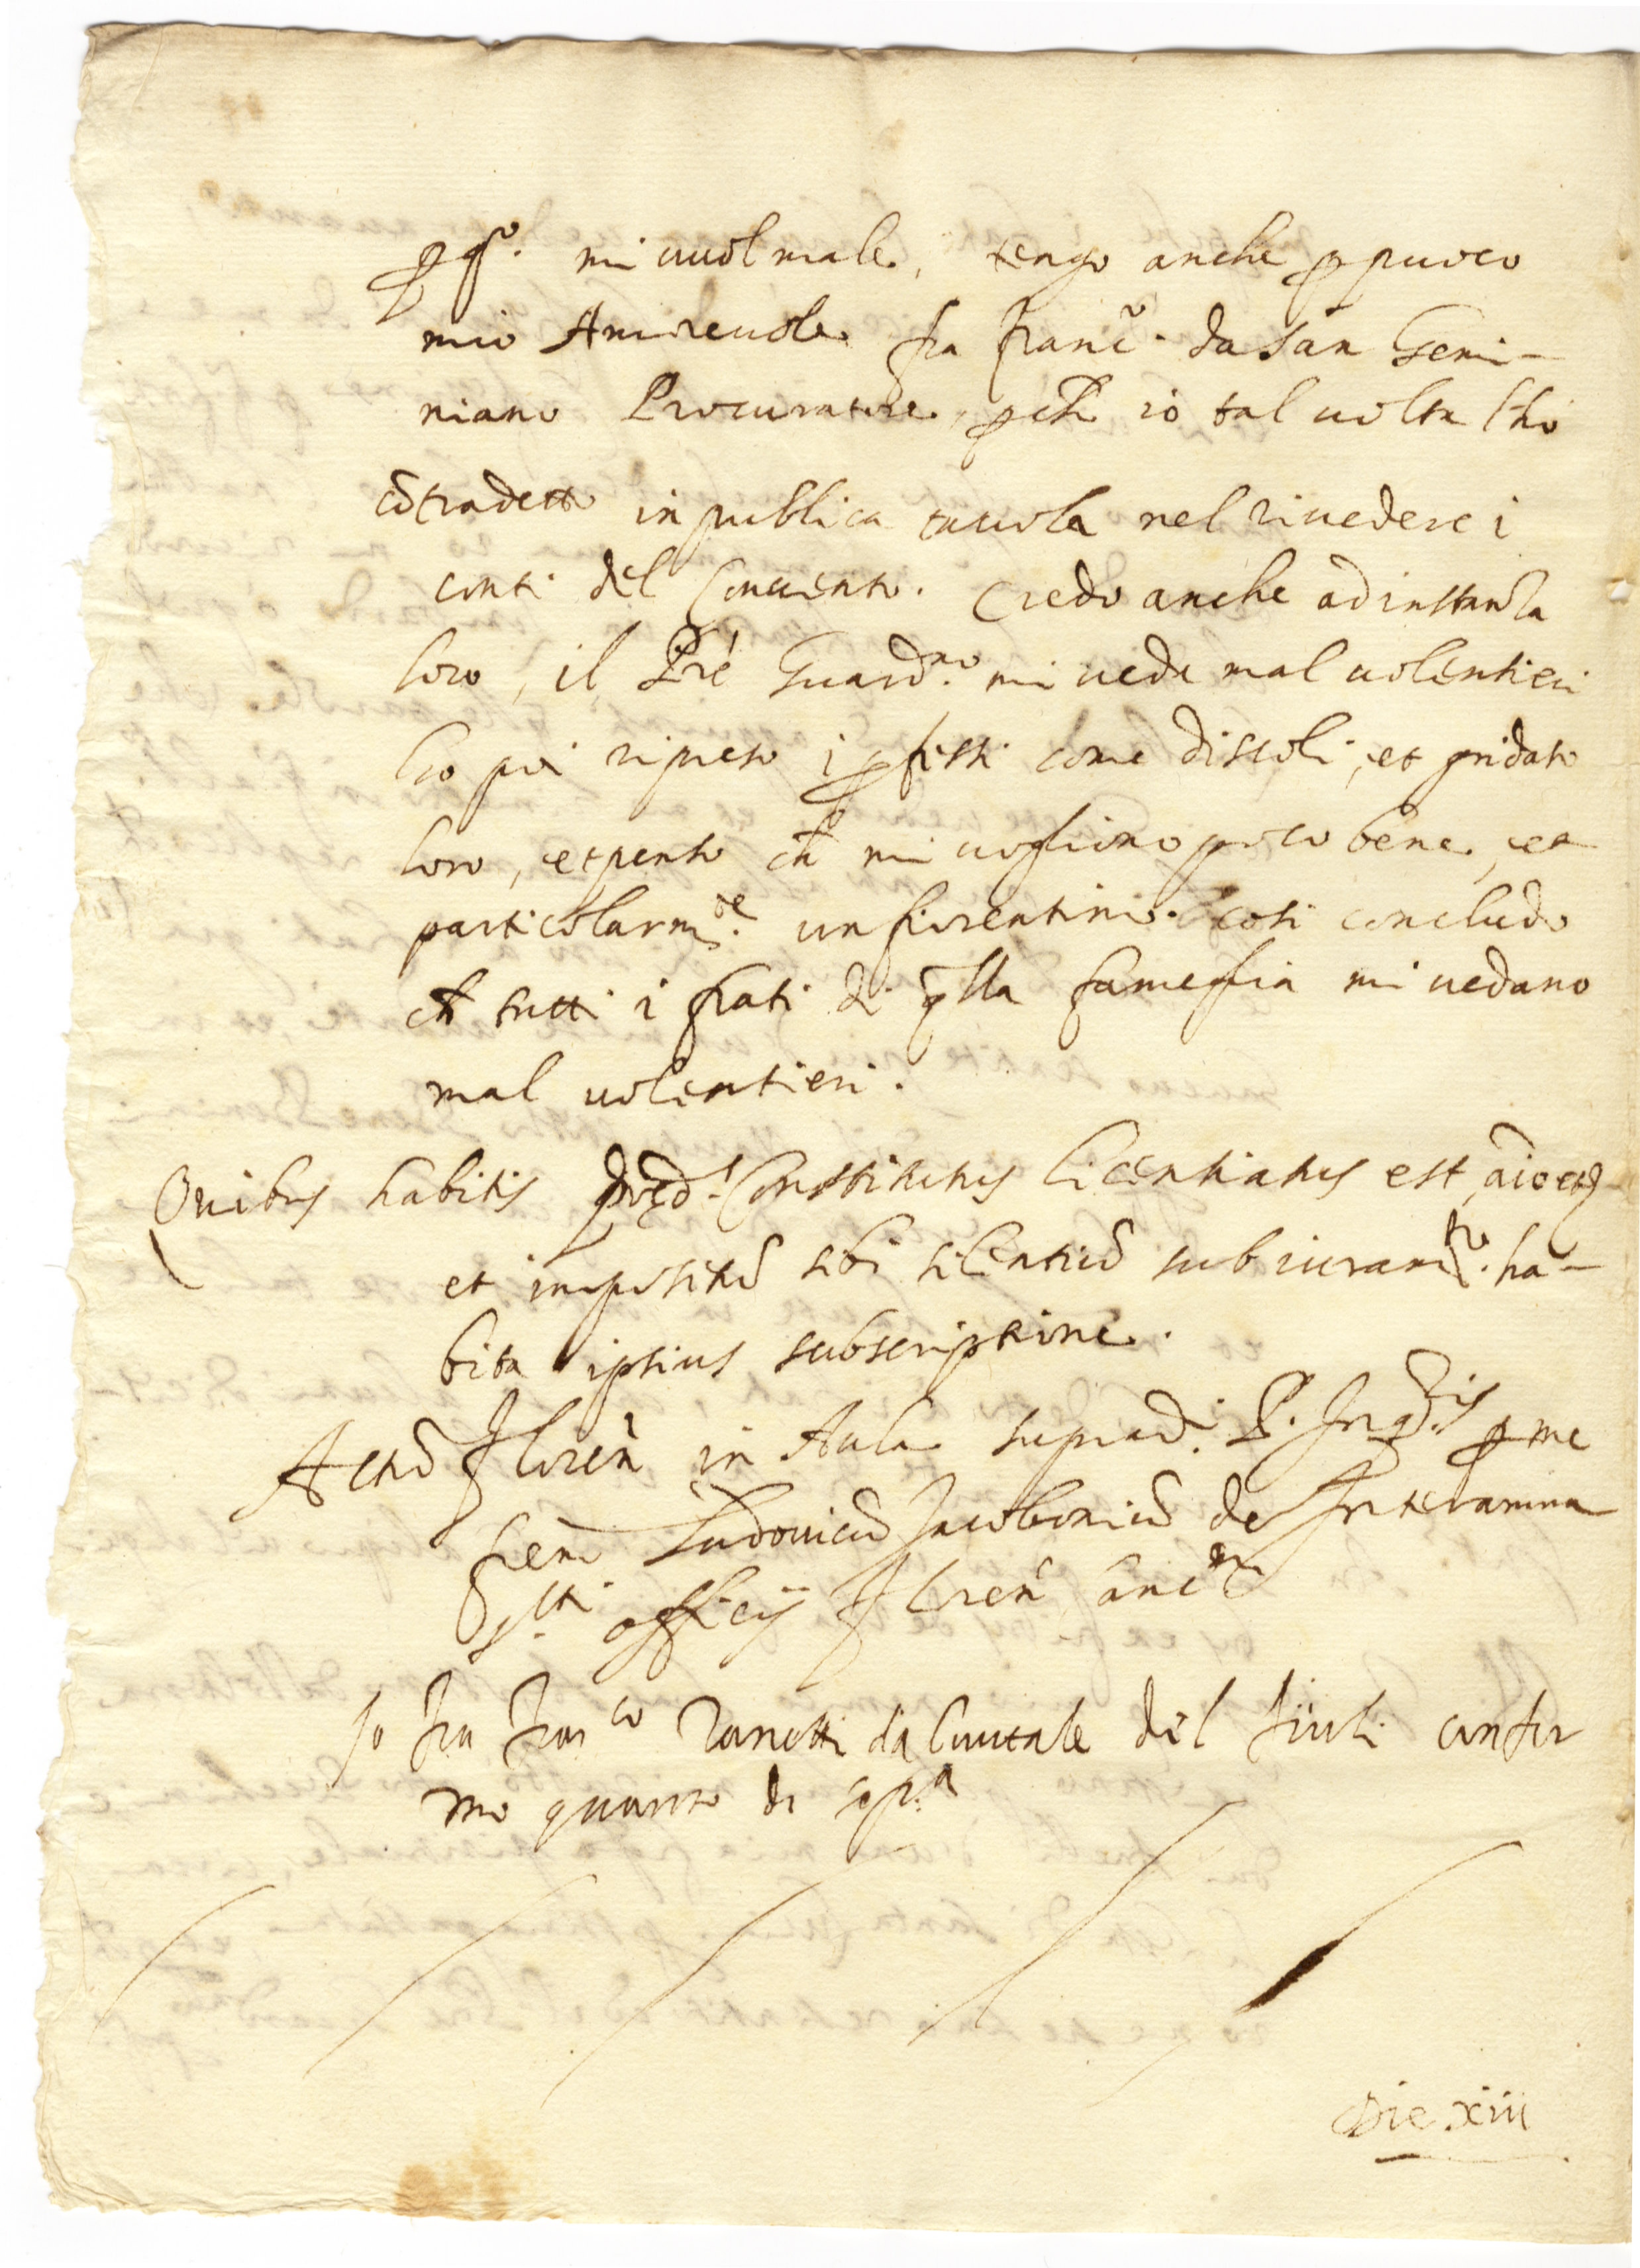 p q.º mi vuol male, tengo anche p puoco
mio Amorevole fra Franc.º da San Gemi-
niano Procuratore, pch io tal volta l'hò
cõtradetto in publica tavola nel rivedere i
conti del Convento. Credo anche ad instanza
loro, il Pre Guard.no mi veda mal volentieri
ho poi ripreso i pfessi come discoli, et gridato
loro, et penso ch mi vogliono poco bene, et
particolarm.te un fiorentino. Così concludo
ch tutti i frati di qlla fameglia mi vedano
mal volentieri.
Quibus habitis pred.s Constitutus licentiatus est, aio etc
et impositũ sibi silentiũ sub iuram.to ha-
bita ipsius subscriptione.
Actũ Floren in Aula suprad.i P. Inq.ris p me
frem Ludovicũ Jacoboniũ de Interamna
S.cti officij Floren Canc.m
Io Fra Fran.co Zanetti da Civitale del Friuli confir
mo quanto di sop.a
Die xiii